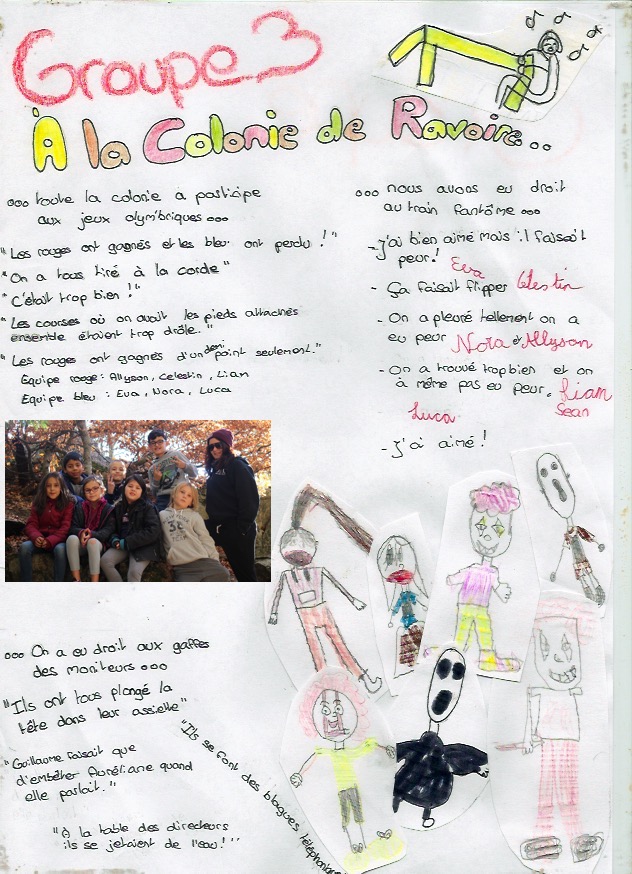 Groupe 3
À la Colonie de Ravoire..
ooo toute la colonie a participe
aux jeux olym'briques ooo
"Les rouges ont gagnés et les bleu ont perdu !"
"On a tous tiré à la corde"
"C'était trop bien !"
"Les courses où on avait les pieds attachés
ensemble étaient trop drôle."
"Les rouges ont gagnés d'un demi point seulement."
Equipe rouge : Allyson, Celestin, Lian
Equipe bleu : Eva, Nora, Luca
ooo nous avons eu droit
au train fantôme ooo
- J'ai bien aimé mais il faisait
peur! Eva
- Ça faisait flipper Célestin
- On a pleuré tellement on a
eu peur Nora et Allyson
- On a trouvé trop bien et on
à même pas eu peur. Lian
Sean
Luca
- J'ai aimé !
ooo On a eu droit aux gaffes
des moniteurs ooo
"Ils ont tous plongé la
tête dans leur assiette"
"Guillaume faisait que
d'embêter Auréliane quand
elle parlait."
"Ils se font des blagues téléphoniques
"À la table des directeurs
ils se jetaient de l'eau !"